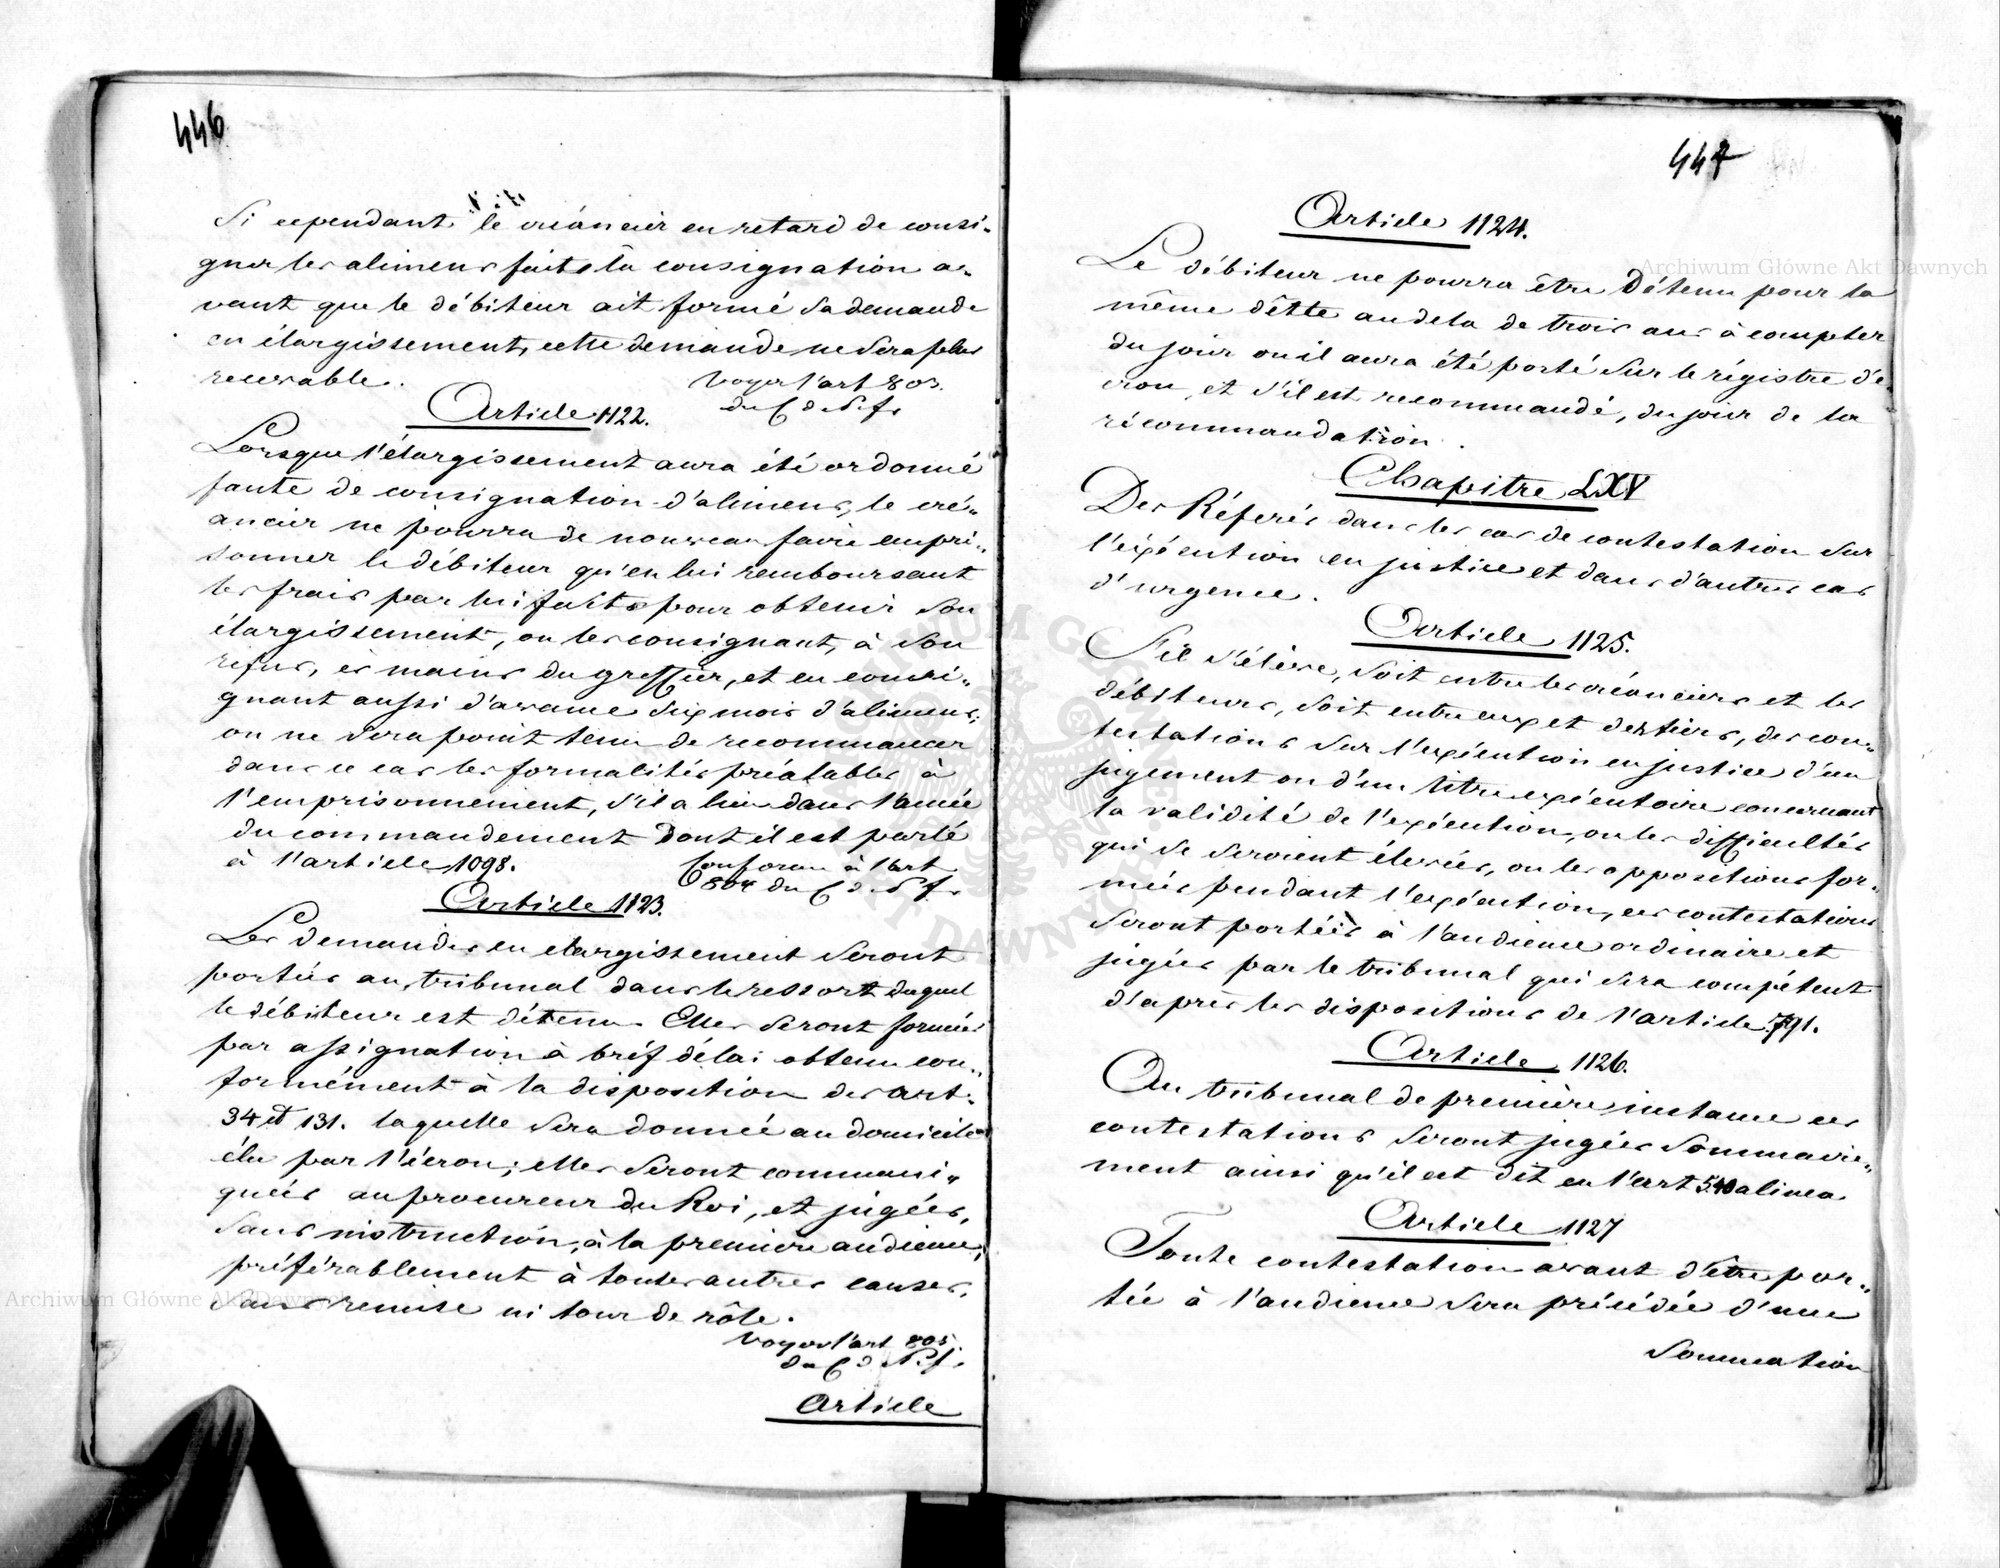 446
Si cependant le créancier en retard de consi-
gner les alimens fait la consignation a-
vant que le débiteur ait formé sa demande
en élargissement, cette demande ne sera plus
recevable. Voyez l'art 803.
du C d. P. fr
Article 1122.
Lorsque l'élargissement aura été ordonné
faute de consignation d'alimens, le cré-
ancier ne pourra de nouveau faire empri-
sonner le débiteur qu'en lui remboursant
les frais par lui faits pour obtenir son
élargissement, ou les consignant, à son
refus, ès mains du greffier, et en consi-
gnant aussi d'avance six mois d'alimens;
on ne sera point tenu de recommancer
dans ce cas les formalités préalables à
l'emprisonnement, s'il a lieu dans l'année
du commandement dont il est parlé
à l'article 1098. Conforme à l'art
804 du C d. P. fr.
Article 1123.
Les demandes en elargissement seront
portées au tribunal dans le ressort duquel
le débiteur est détenu. Elles seront formées
par assignation à bréf délai obtenu con-
formément à la disposition des art:
34 et 131. laquelle sera donnée au domicile
élu par l'écrou; elles seront communi-
quées au procureur du Roi, et jugées,
sans instruction, à la première audience,
préférablement à toutes autres causes,
sans remise ni tour de rôle.
Voyez l'art 805.
du C d. P. f.
Article
447
Article 1124.
Le débiteur ne pourra être détenu pour la
même dêtte au dela de trois ans à compter
du jour ou il aura été porté sur le régistre d'é-
crou, et s'il est recommandé, du jour de la
récommandation.
Chapitre LXV
Des Réferés dans les cas de contestation sur
l'exécution en justice et dans d'autres cas
d'urgence.
Article 1125.
S'il s'élève, soit entre les créanciers et les
débiteurs, soit entre eux et des tiers, des con-
testations sur l'exécution en justice d'un
jugement ou d'un titre exécutoire concernant
la validité de l'exécution, ou les difficultés
qui se seroient élevées, ou les oppositions for-
mées pendant l'exécution, ces contestations
seront portées à l'audience ordinaire et
jugées par le tribunal qui sera compétent
d'après les dispositions de l'article 791.
Article 1126.
Au tribunal de première instance ces
contestations seront jugées sommaire-
ment ainsi qu'il est dit en l'art alinea.
Article 1127
Toute contestation avant d'être por-
tée à l'audience sera précédée d'une
sommation
Archiwum Główne Akt Dawnych
Archiwum Główne Akt Dawnych
ARCHIWUM GŁÓWNE AKT DAWNYCH